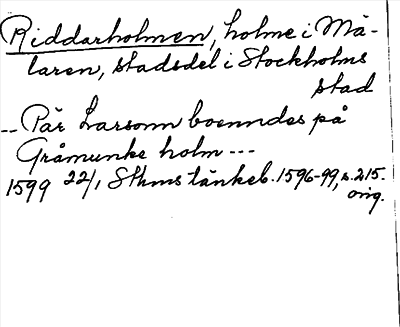 Riddarholmen, holme i Mä-
laren, stadsdel i Stockholms
stad
-- Pär Larsonn boenndes på
Gråmunke holm ---
1599 22/1 Sthms tänkeb. 1596-99, s. 215.
orig.